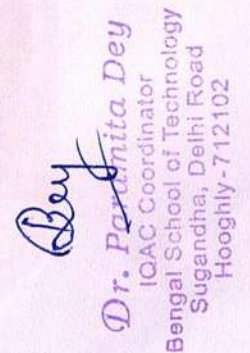 Dey
Dr. Paramita Dey
IQAC Coordinator
Bengal School of Technology
Sugandha, Delhi Road
Hooghly-712102